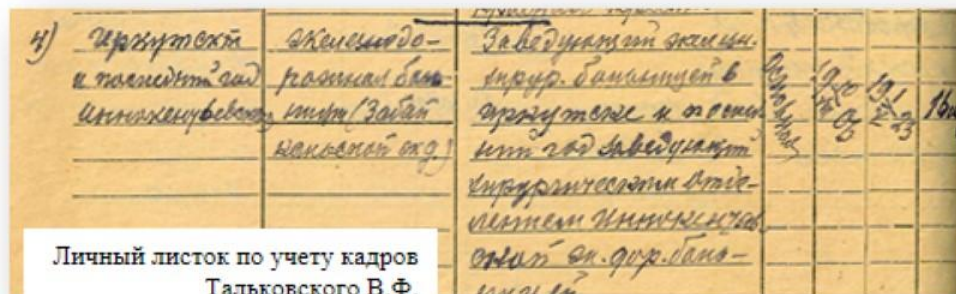 4) Иркутскъ
и последний год
Иннокентьевская
Железнодо-
рожная боль-
ница (Забай
кальской жд.)
Заведующий железн.
хирур. больницей в
Иркутске и послед
ний год заведующий
хирургическим отде-
лением Иннокентьев
ской ж. дор. боль-
ницей
Основная
Личный листок по учету кадров
Тальковского В.Ф.